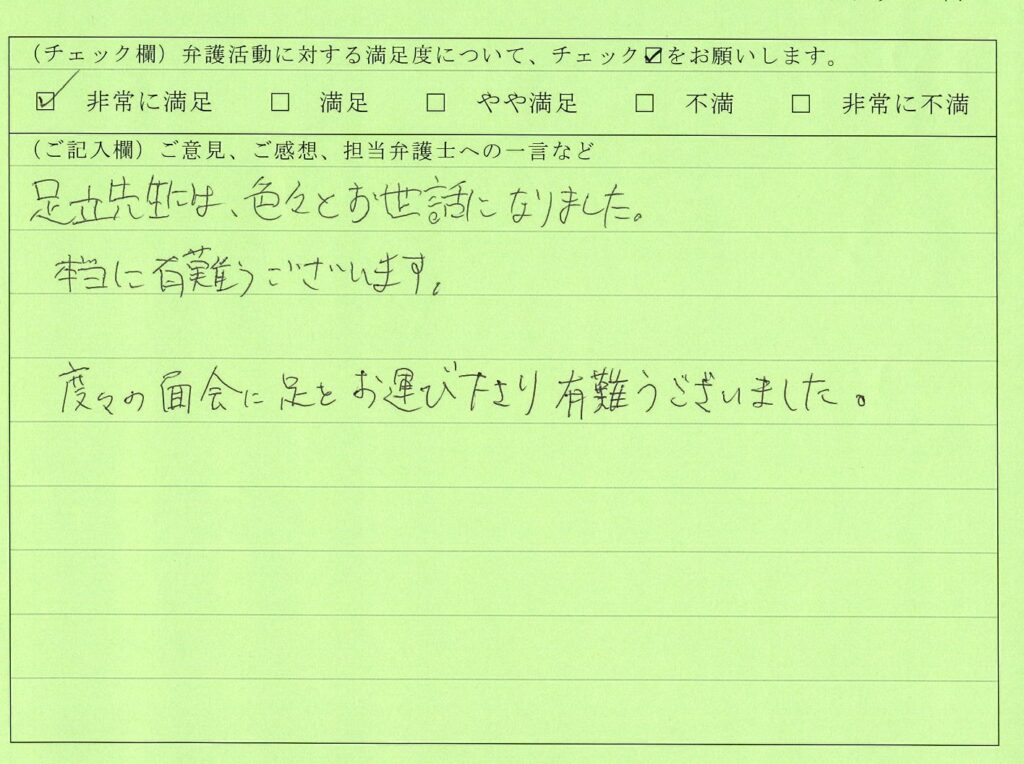 （チェック欄）弁護活動に対する満足度について、チェック☑をお願いします。
☑ 非常に満足 □ 満足 □ やや満足 □ 不満 □ 非常に不満
（ご記入欄）ご意見、ご感想、担当弁護士への一言など
足立先生には、色々とお世話になりました。
本当に有難うございます。
度々の面会に足をお運び下さり有難うございました。